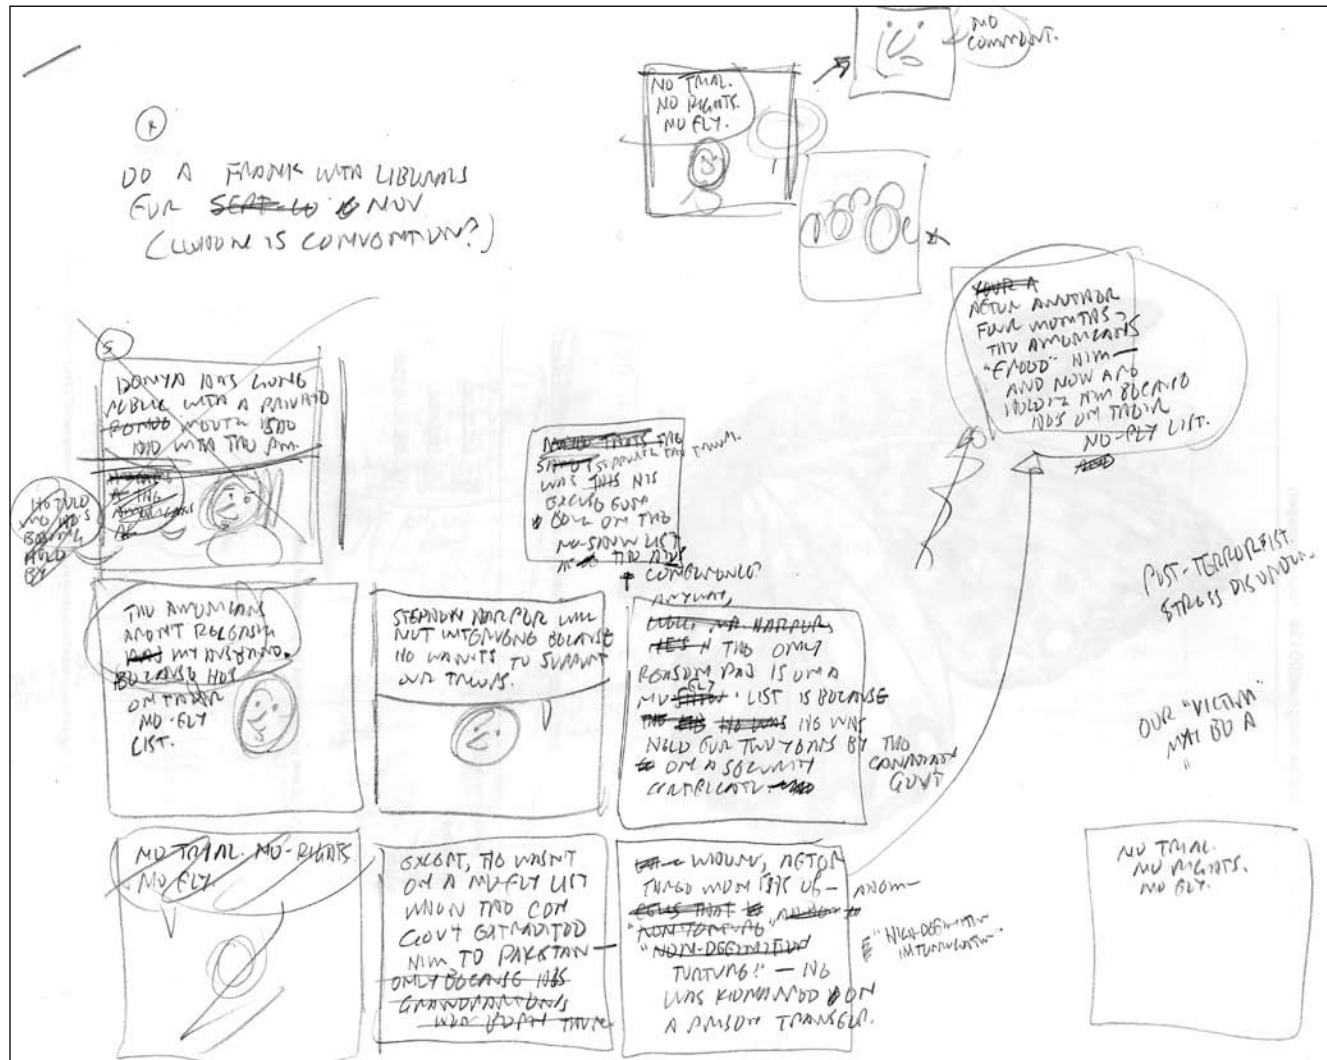 NO
COMMENT.
NO TRIAL.
NO RIGHTS.
NO FLY.
DO A FRANK WITH LIBERALS
FOR NOV
(WHEN IS CONVENTION?)
AFTER ANOTHER
FOUR MONTHS,
THE AMERICANS
"FREED" HIM—
AND NOW ARE
HOLDING HIM BECAUSE
HE'S ON THEIR
NO-FLY LIST.
5
DONYA HAS GONE
PUBLIC WITH A PRIVATE
SHE
DID WITH THE PM.
HE TOLD
ME HE'S
BEING
HELD
BY
WAS THIS HIS
EXCUSE
ON THE
NO-SHOW LIST
THE AIDS
CONFERENCE?
POST-TERRORIST
STRESS DISORDER
THE AMERICANS
AREN'T RELEASING
MY HUSBAND
BECAUSE HE'S
ON THEIR
NO-FLY
LIST.
STEPHEN HARPER WILL
NOT INTERVENE BECAUSE
HE WANTS TO SUPPORT
OUR TROOPS.
ANYWAY,
WELL, MR. HARPER,
THE ONLY
REASON DAD IS ON A
NO FLY LIST IS BECAUSE
HE WAS
HELD FOR TWO YEARS BY THE
CANADIAN
GOVT
ON A SECURITY
CERTIFICATE
OUR "VICTIM"
MAY BE A
"
NO TRIAL. NO RIGHTS.
NO FLY.
EXCEPT, HE WASN'T
ON A NO-FLY LIST
WHEN THE CON
GOVT EXTRADITED
HIM TO PAKISTAN—
ONLY BECAUSE HIS
GRANDPARENTS
WERE BORN THERE
WHERE, AFTER
THREE MONTHS OF—
"NON-DEFINITION
TORTURE"— HE
WAS KIDNAPPED ON
A PRISON TRANSFER.
"HIGH-DEFINITION
INTERROGATION"
NO TRIAL.
NO RIGHTS.
NO FLY.